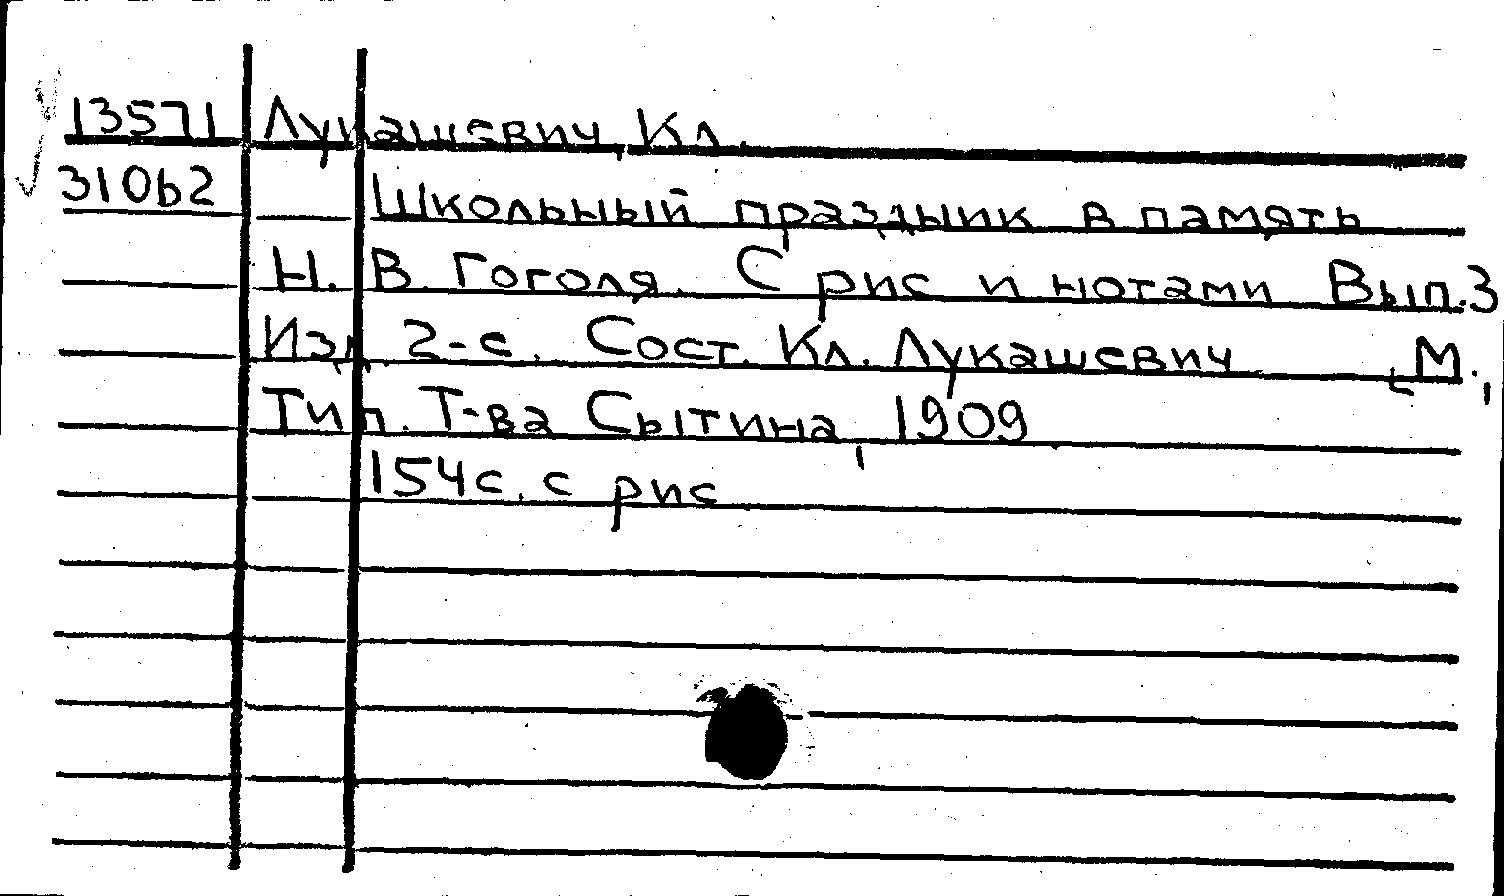 13571 Лукашевич Кл.
31062 Школьный праздник в память
Н. В. Гоголя. С рис и нотами Вып.3
Изд. 2-е. Сост. Кл. Лукашевич М.,
Тип. Т-ва Сытина, 1909
154с. с рис